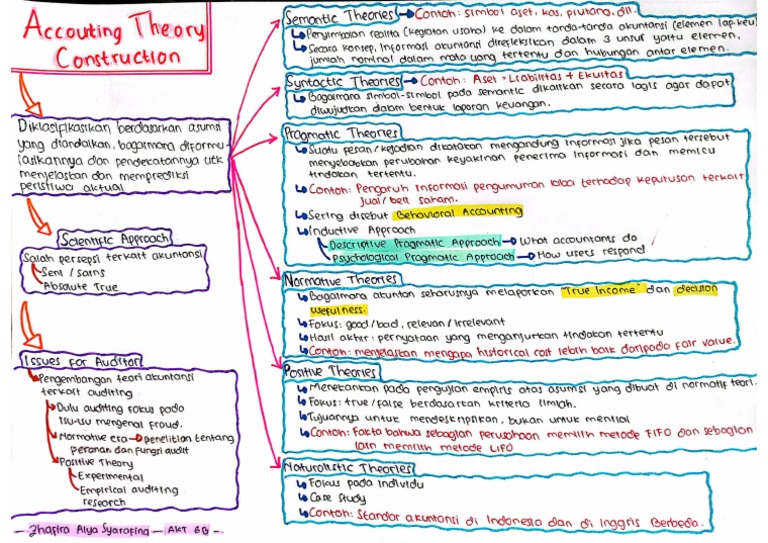 Accounting Theory
Construction
Diklasifikasikan berdasarkan asumsi
yang diandalkan, bagaimana diformu
lasikannya dan pendekatannya utk
menjelaskan dan memprediksi
peristiwa aktual
Scientific Approach
Salah persepsi terkait akuntansi
Seni / Sains
Absolute True
Issues for Auditor
Pengembangan teori akuntansi
terkait auditing
Dulu auditing fokus pada
isu-isu mengenai fraud.
Normative era → penelitian tentang
peranan dan fungsi audit
Positive Theory
Experimental
Empirical auditing
research
Zhafira Alya Syarafina — AKT 6D
Semantic Theories → Contoh: simbol aset, kas, piutang, dll
Penyimbolan realita (kegiatan usaha) ke dalam tanda-tanda akuntansi (elemen lap.keu)
Secara konsep, informasi akuntansi direfleksikan dalam 3 unsur yaitu elemen,
jumlah nominal dalam mata uang tertentu dan hubungan antar elemen.
Syntactic Theories → Contoh: Aset = Liabilitas + Ekuitas
Bagaimana simbol-simbol pada semantic dikaitkan secara logis agar dapat
diwujudkan dalam bentuk laporan keuangan.
Pragmatic Theories
Suatu pesan/kejadian dikatakan mengandung informasi jika pesan tersebut
menyebabkan perubahan keyakinan penerima informasi dan memicu
tindakan tertentu.
Contoh: Pengaruh informasi pengumuman laba terhadap keputusan terkait
jual/beli saham.
Sering disebut Behavioral Accounting
Inductive Approach
Descriptive Pragmatic Approach → What accountants do
Psychological Pragmatic Approach → How users respond
Normative Theories
Bagaimana akuntan seharusnya melaporkan "True Income" dan decision
usefulness.
Fokus: good/bad, relevan/irrelevant
Hasil akhir: pernyataan yang menganjurkan tindakan tertentu
Contoh: menjelaskan mengapa historical cost lebih baik daripada fair value.
Positive Theories
Menekankan pada pengujian empiris atas asumsi yang dibuat di normatif teori.
Fokus: true/false berdasarkan kriteria ilmiah.
Tujuannya untuk mendeskripsikan, bukan untuk menilai
Contoh: Fakta bahwa sebagian perusahaan memilih metode FIFO dan sebagian
lain memilih metode LIFO
Naturalistic Theories
Fokus pada individu
Case Study
Contoh: Standar akuntansi di Indonesia dan di Inggris Berbeda.